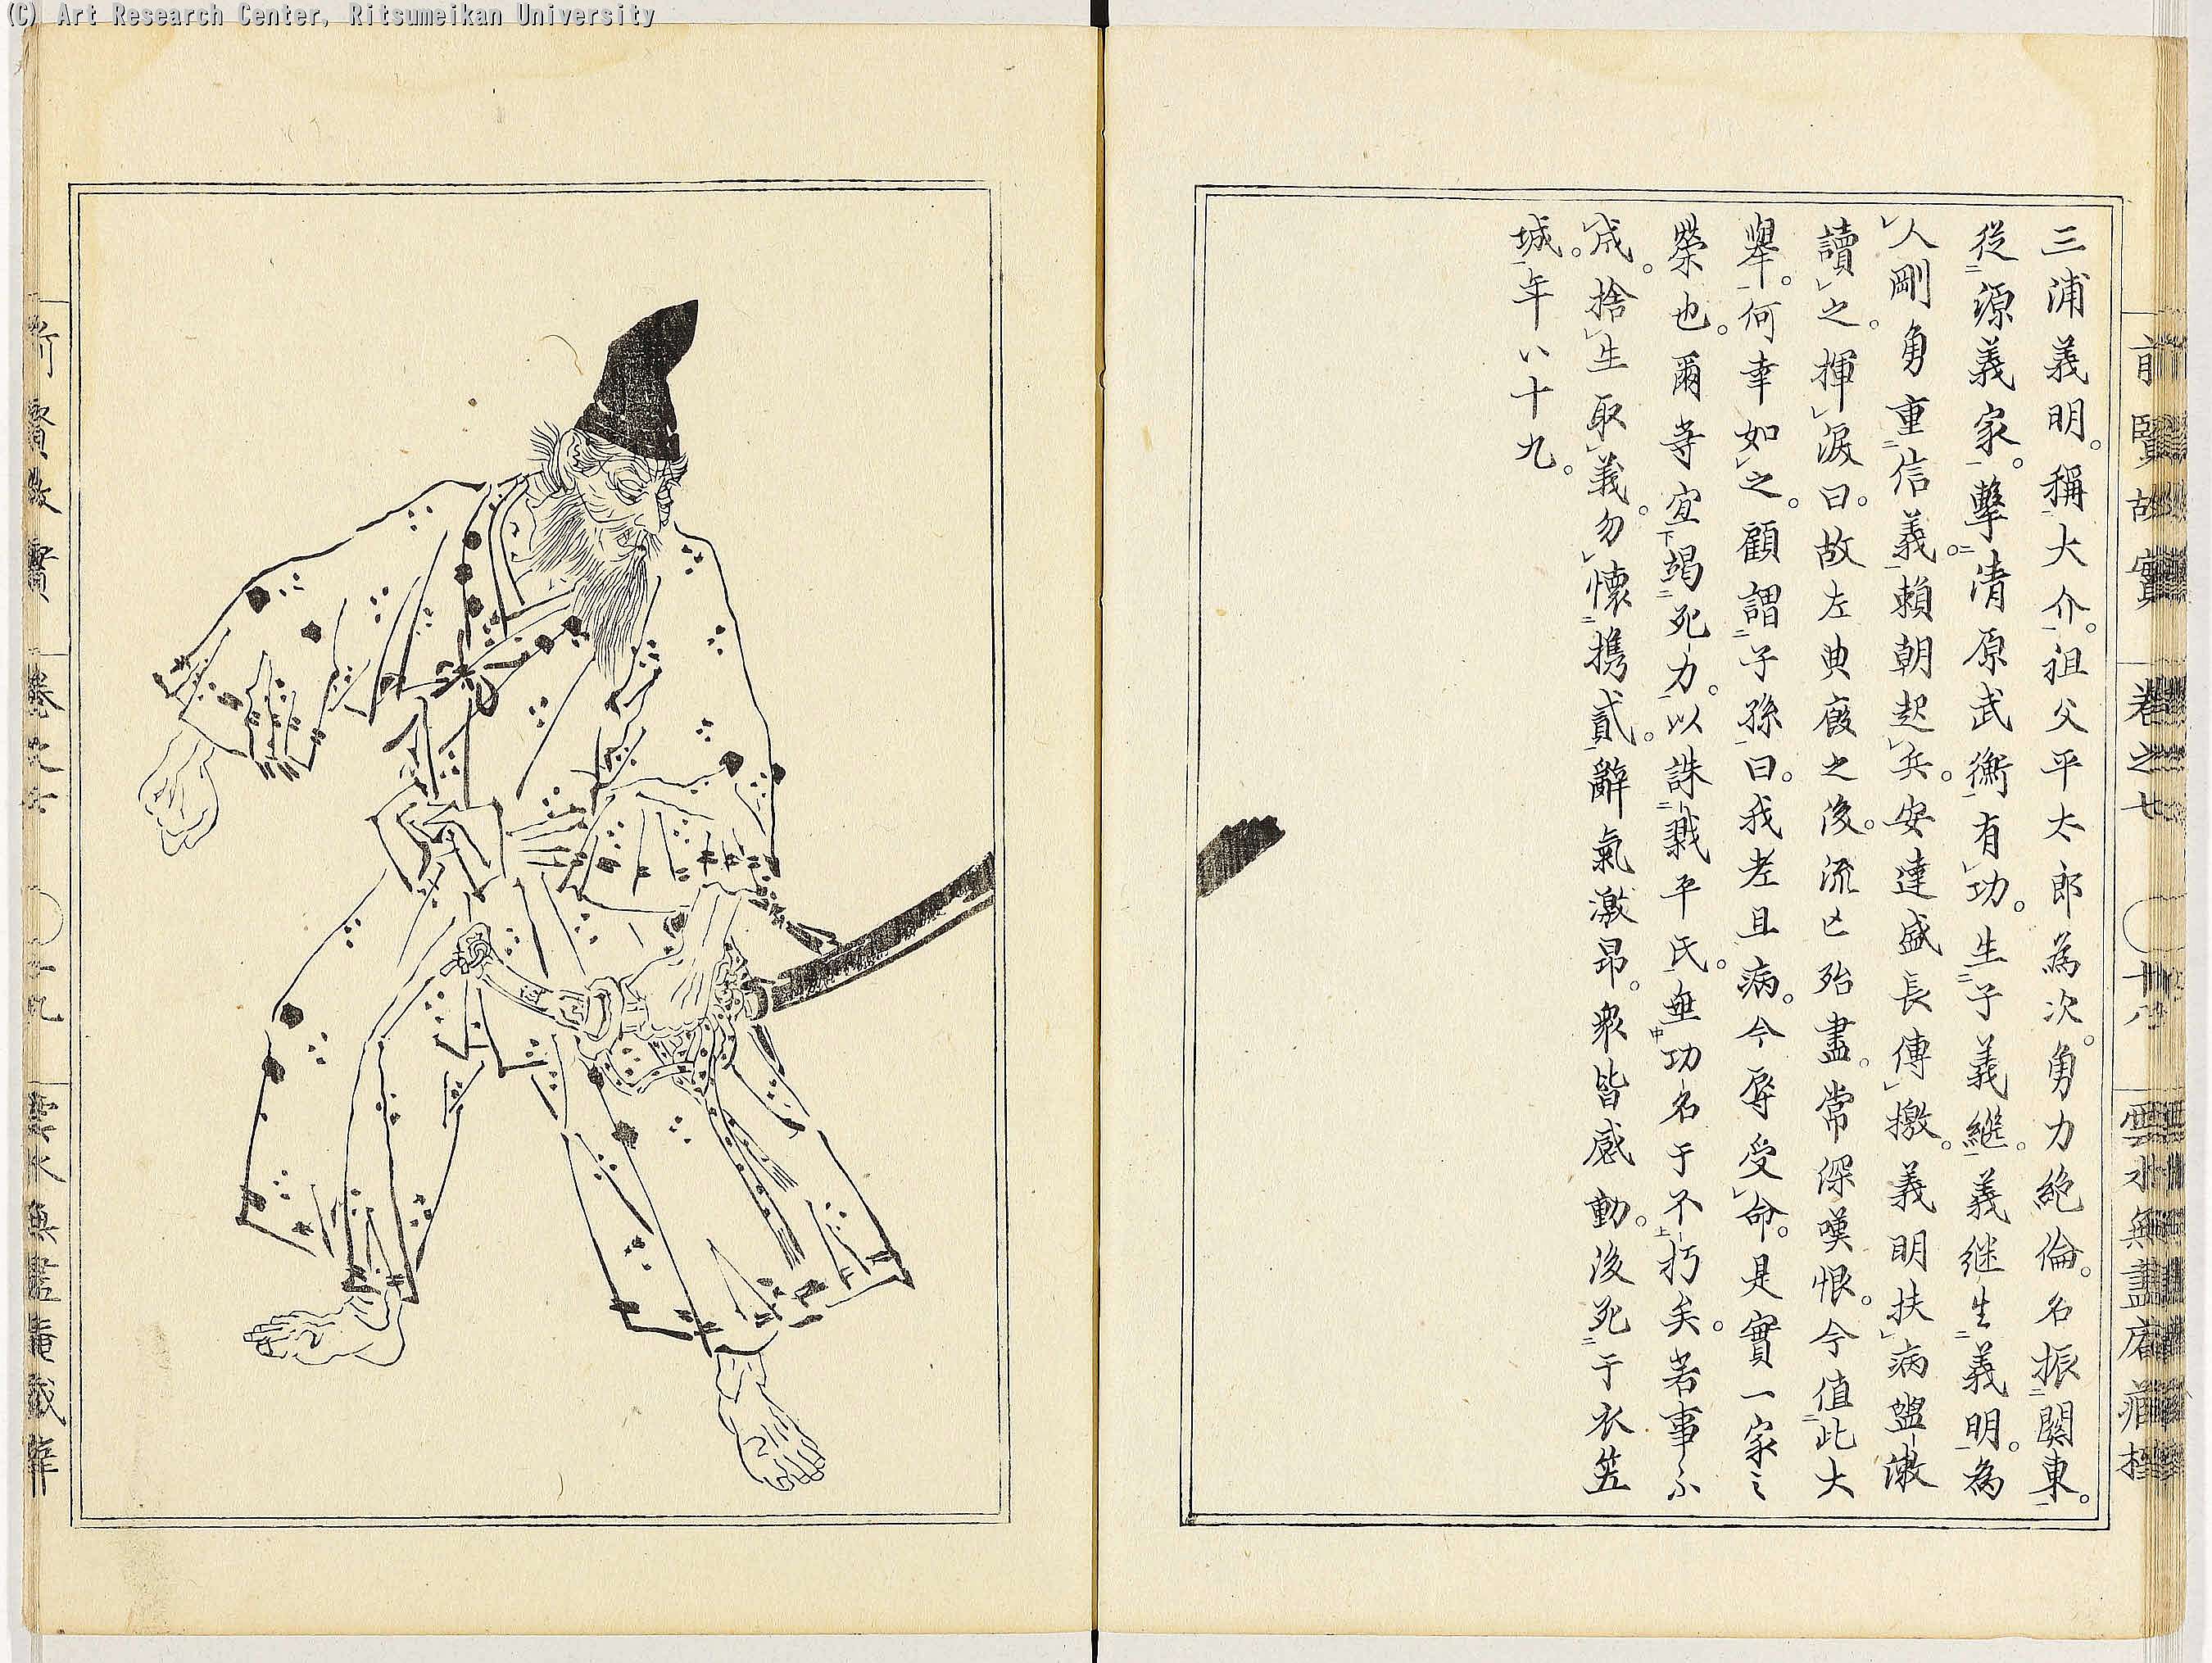 (C) Art Research Center, Ritsumeikan University
前賢故實 卷之七 十八 雲水無盡庵藏梓
三浦義明。稱大介。祖父平太郎為次。勇力絶倫。名振關東。
從源義家。擊清原武衡有功。生子義繼。義继生義明。為
人剛勇重信義。賴朝起兵。安達盛長傳檄。義明扶病盥漱
讀之。揮淚曰。故左典廐之後。流亡殆盡。常深嘆恨。今值此大
舉。何幸如之。顧謂子孫曰。我老且病。今辱受命。是實一家之
榮也。爾等宜竭死力。以誅戮平氏。垂功名于不朽矣。若事不
成。捨生取義。勿懷攜貳。辭氣激昂。衆皆感動。後死于衣笠
城。年八十九。
前賢故實 卷之七 十九 雲水無盡庵藏梓